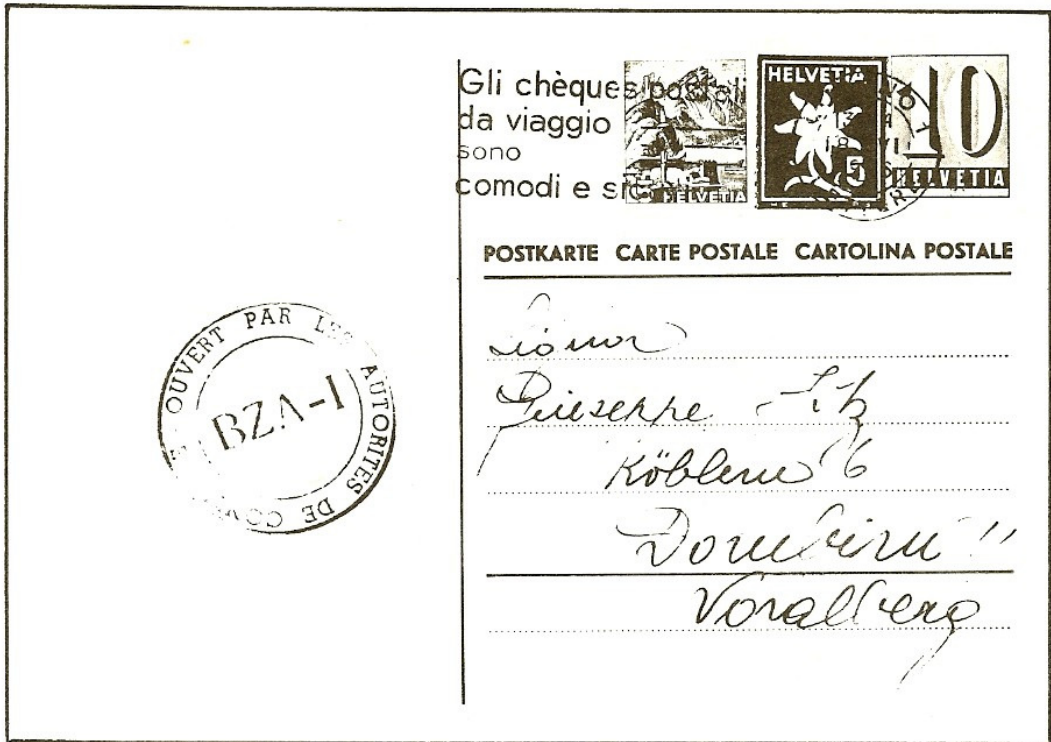 Gli chèques postali
da viaggio
sono
comodi e
HELVETIA
HELVETIA
5
10
HELVETIA
POSTKARTE CARTE POSTALE CARTOLINA POSTALE
Signor
Giuseppe
Köblern 6
Dornbirn
Voralberg
OUVERT PAR LES AUTORITES DE
BZA-I